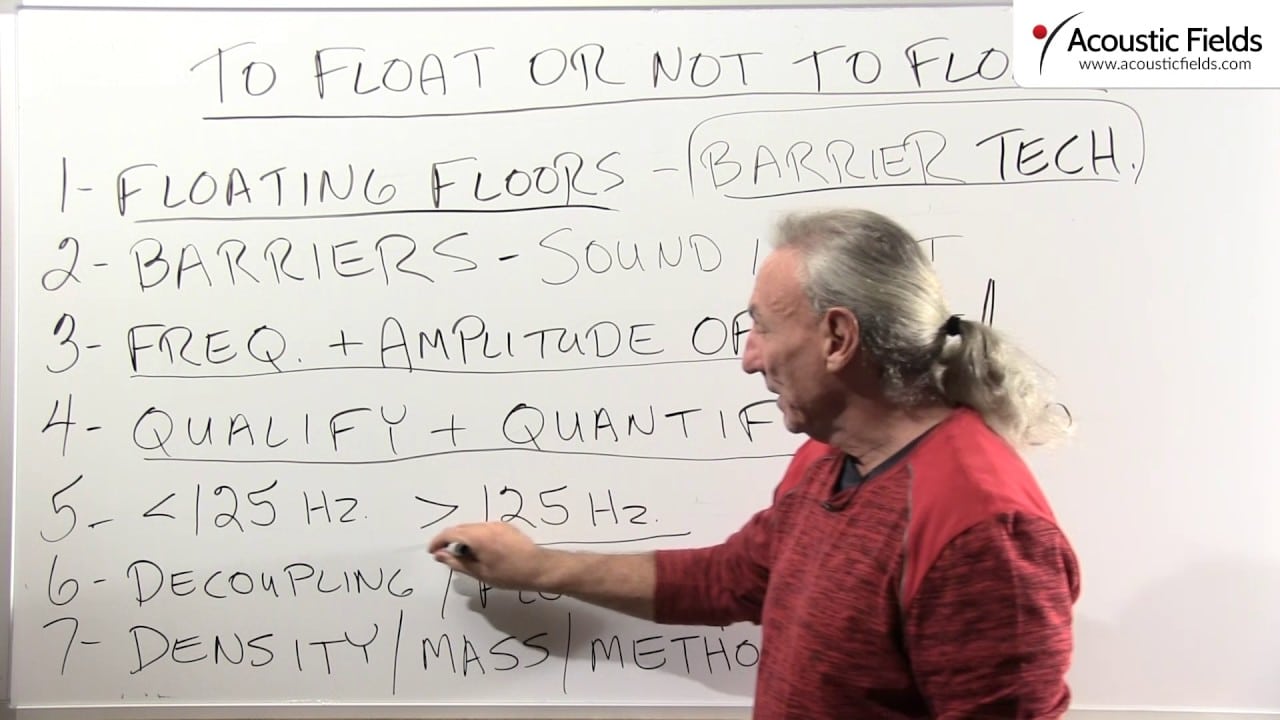 TO FLOAT OR NOT TO FLO
Acoustic Fields
www.acousticfields.com
1- FLOATING FLOORS - BARRIER TECH.
2- BARRIERS - SOUND
3- FREQ. + AMPLITUDE OF
4- QUALIFY + QUANTIF
5- <125 Hz. >125 Hz.
6- DECOUPLING /
7- DENSITY/MASS/METHO